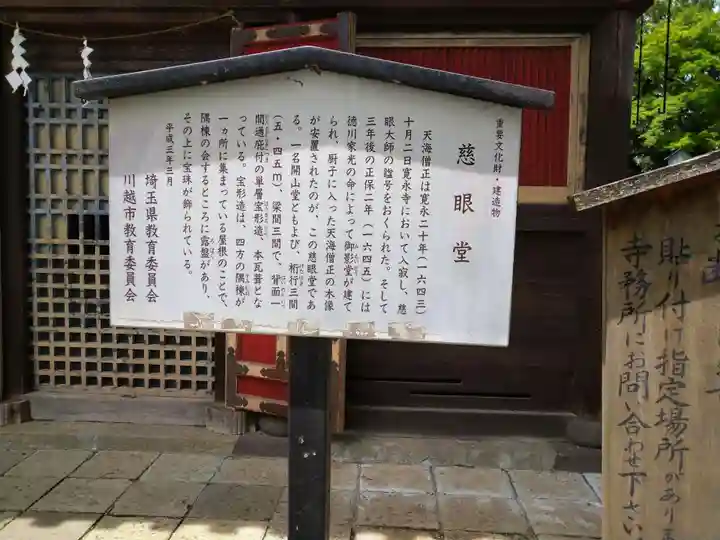 重要文化財・建造物
慈眼堂
天海僧正は寛永二十年(一六四三)
十月二日寛永寺において入寂し、慈
眼大師の諡号をおくられた。そして
三年後の正保二年(一六四五)には
徳川家光の命によって御影堂が建て
られ、厨子に入った天海僧正の木像
が安置されたのが、この慈眼堂であ
る。一名開山堂ともよび、桁行三間
(五・四五m)、梁間三間で、背面一
間通庇付の単層宝形造、本瓦葺とな
っている。宝形造は、四方の隅棟が
一ヵ所に集まっている屋根のことで、
隅棟の会するところに露盤があり、
その上に宝珠が飾られている。
平成三年三月
埼玉県教育委員会
川越市教育委員会
貼り付け指定場所があります
寺務所にお問い合わせ下さい